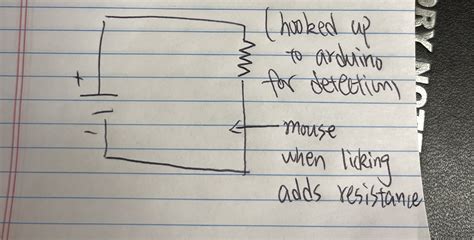 (hooked up
to arduino
for detection)
+
-
mouse
when licking
adds resistance
ORY NOTE